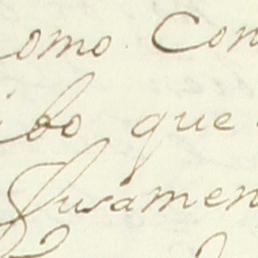 como. Con
ibo que
Juramen